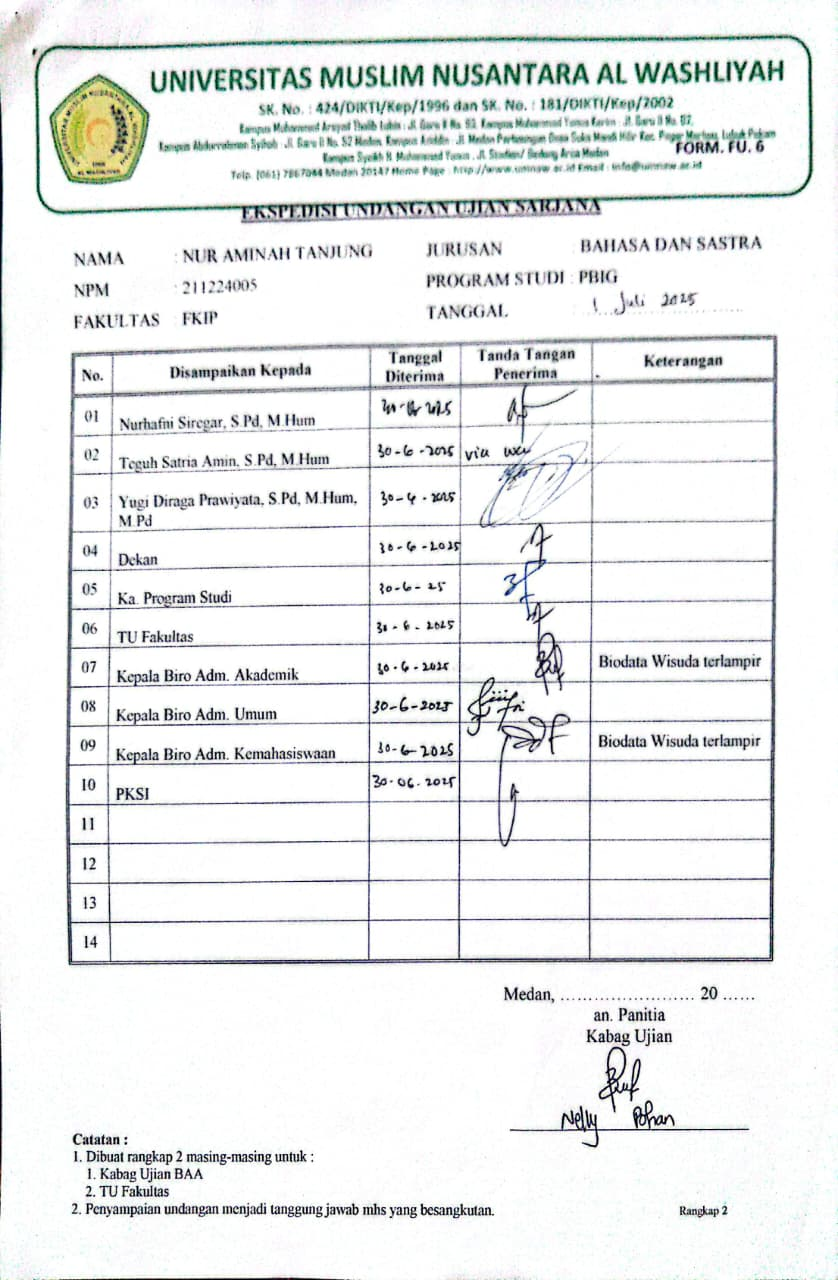 UNIVERSITAS MUSLIM NUSANTARA AL WASHLIYAH
SK. No. : 424/DIKTI/Kep/1996 dan SK. No. : 181/DIKTI/Kep/2002
Kampus Muhammad Arsyad Thalib Lubis : Jl. Garu II No. 93, Kampus Muhammad Yunus Karim : Jl. Garu II No. 02,
Kampus Abdurrahman Syihab : Jl. Garu II No. 52 Medan, Kampus : Jl. Medan Perbaungan Desa Suka Mandi Hilir Kec. Pagar Merbau, Lubuk Pakam
Kampus Syeikh H. Muhammad Yunus , Jl. Stadion/ Gedung Arca Medan
FORM. FU. 6
Telp. (061) 7867044 Medan 20147 Home Page : http://www.umnaw.ac.id Email : info@umnaw.ac.id
EKSPEDISI UNDANGAN UJIAN SARJANA
NAMA : NUR AMINAH TANJUNG JURUSAN : BAHASA DAN SASTRA
NPM : 211224005 PROGRAM STUDI : PBIG
FAKULTAS : FKIP TANGGAL : 1 Juli 2025
No. Disampaikan Kepada Tanggal Diterima Tanda Tangan Penerima Keterangan
01 Nurhafni Siregar, S.Pd, M.Hum
02 Teguh Satria Amin, S.Pd, M.Hum 30-6-2025 via wa
03 Yugi Diraga Prawiyata, S.Pd, M.Hum, M.Pd
04 Dekan 30-6-2025
05 Ka. Program Studi 30-6-25
06 TU Fakultas 30-6-2025
07 Kepala Biro Adm. Akademik 30-6-2025 Biodata Wisuda terlampir
08 Kepala Biro Adm. Umum 30-6-2025
09 Kepala Biro Adm. Kemahasiswaan 30-6-2025 Biodata Wisuda terlampir
10 PKSI 30-06-2025
11
12
13
14
Medan, ........................ 20 ......
an. Panitia
Kabag Ujian
Nelly Pohan
Catatan :
1. Dibuat rangkap 2 masing-masing untuk :
1. Kabag Ujian BAA
2. TU Fakultas
2. Penyampaian undangan menjadi tanggung jawab mhs yang besangkutan.
Rangkap 2